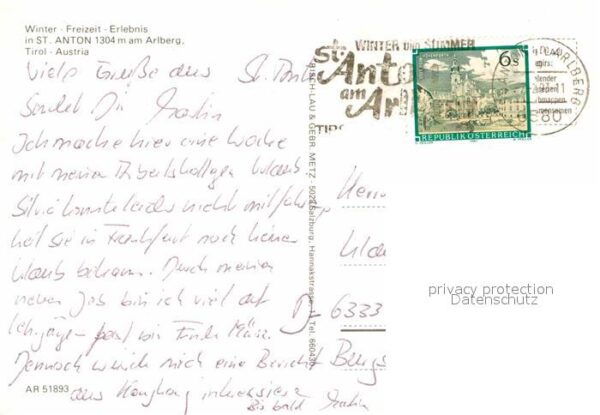 Winter - Freizeit - Erlebnis
in ST. ANTON 1304 m am Arlberg,
Tirol - Austria
Viele Grüße aus St. Anton
sendet Dir Martin
Ich mache hier eine Woche
mit meinen Arbeitskollegen Urlaub
Silvia konnte leider nicht mitfahren,
hat sie in Frankfurt noch keinen
Urlaub bekam. Durch meinen
neuen Job bin ich viel auf
Lehrgängen fast bis Ende März.
Dennoch würde mich eine Bericht
aus Hongkong interessieren
Bis bald Martin
AR 51893
RISCH-LAU & GEBR. METZ - 5020 Salzburg, Hannakstrasse Tel. 66043
WINTER UND SOMMER
St. Anton
am Arl
TIRO
6 S
REPUBLIK ÖSTERREICH
ARLBERG
6580
Herrn
D- 6333
privacy protection
Datenschutz